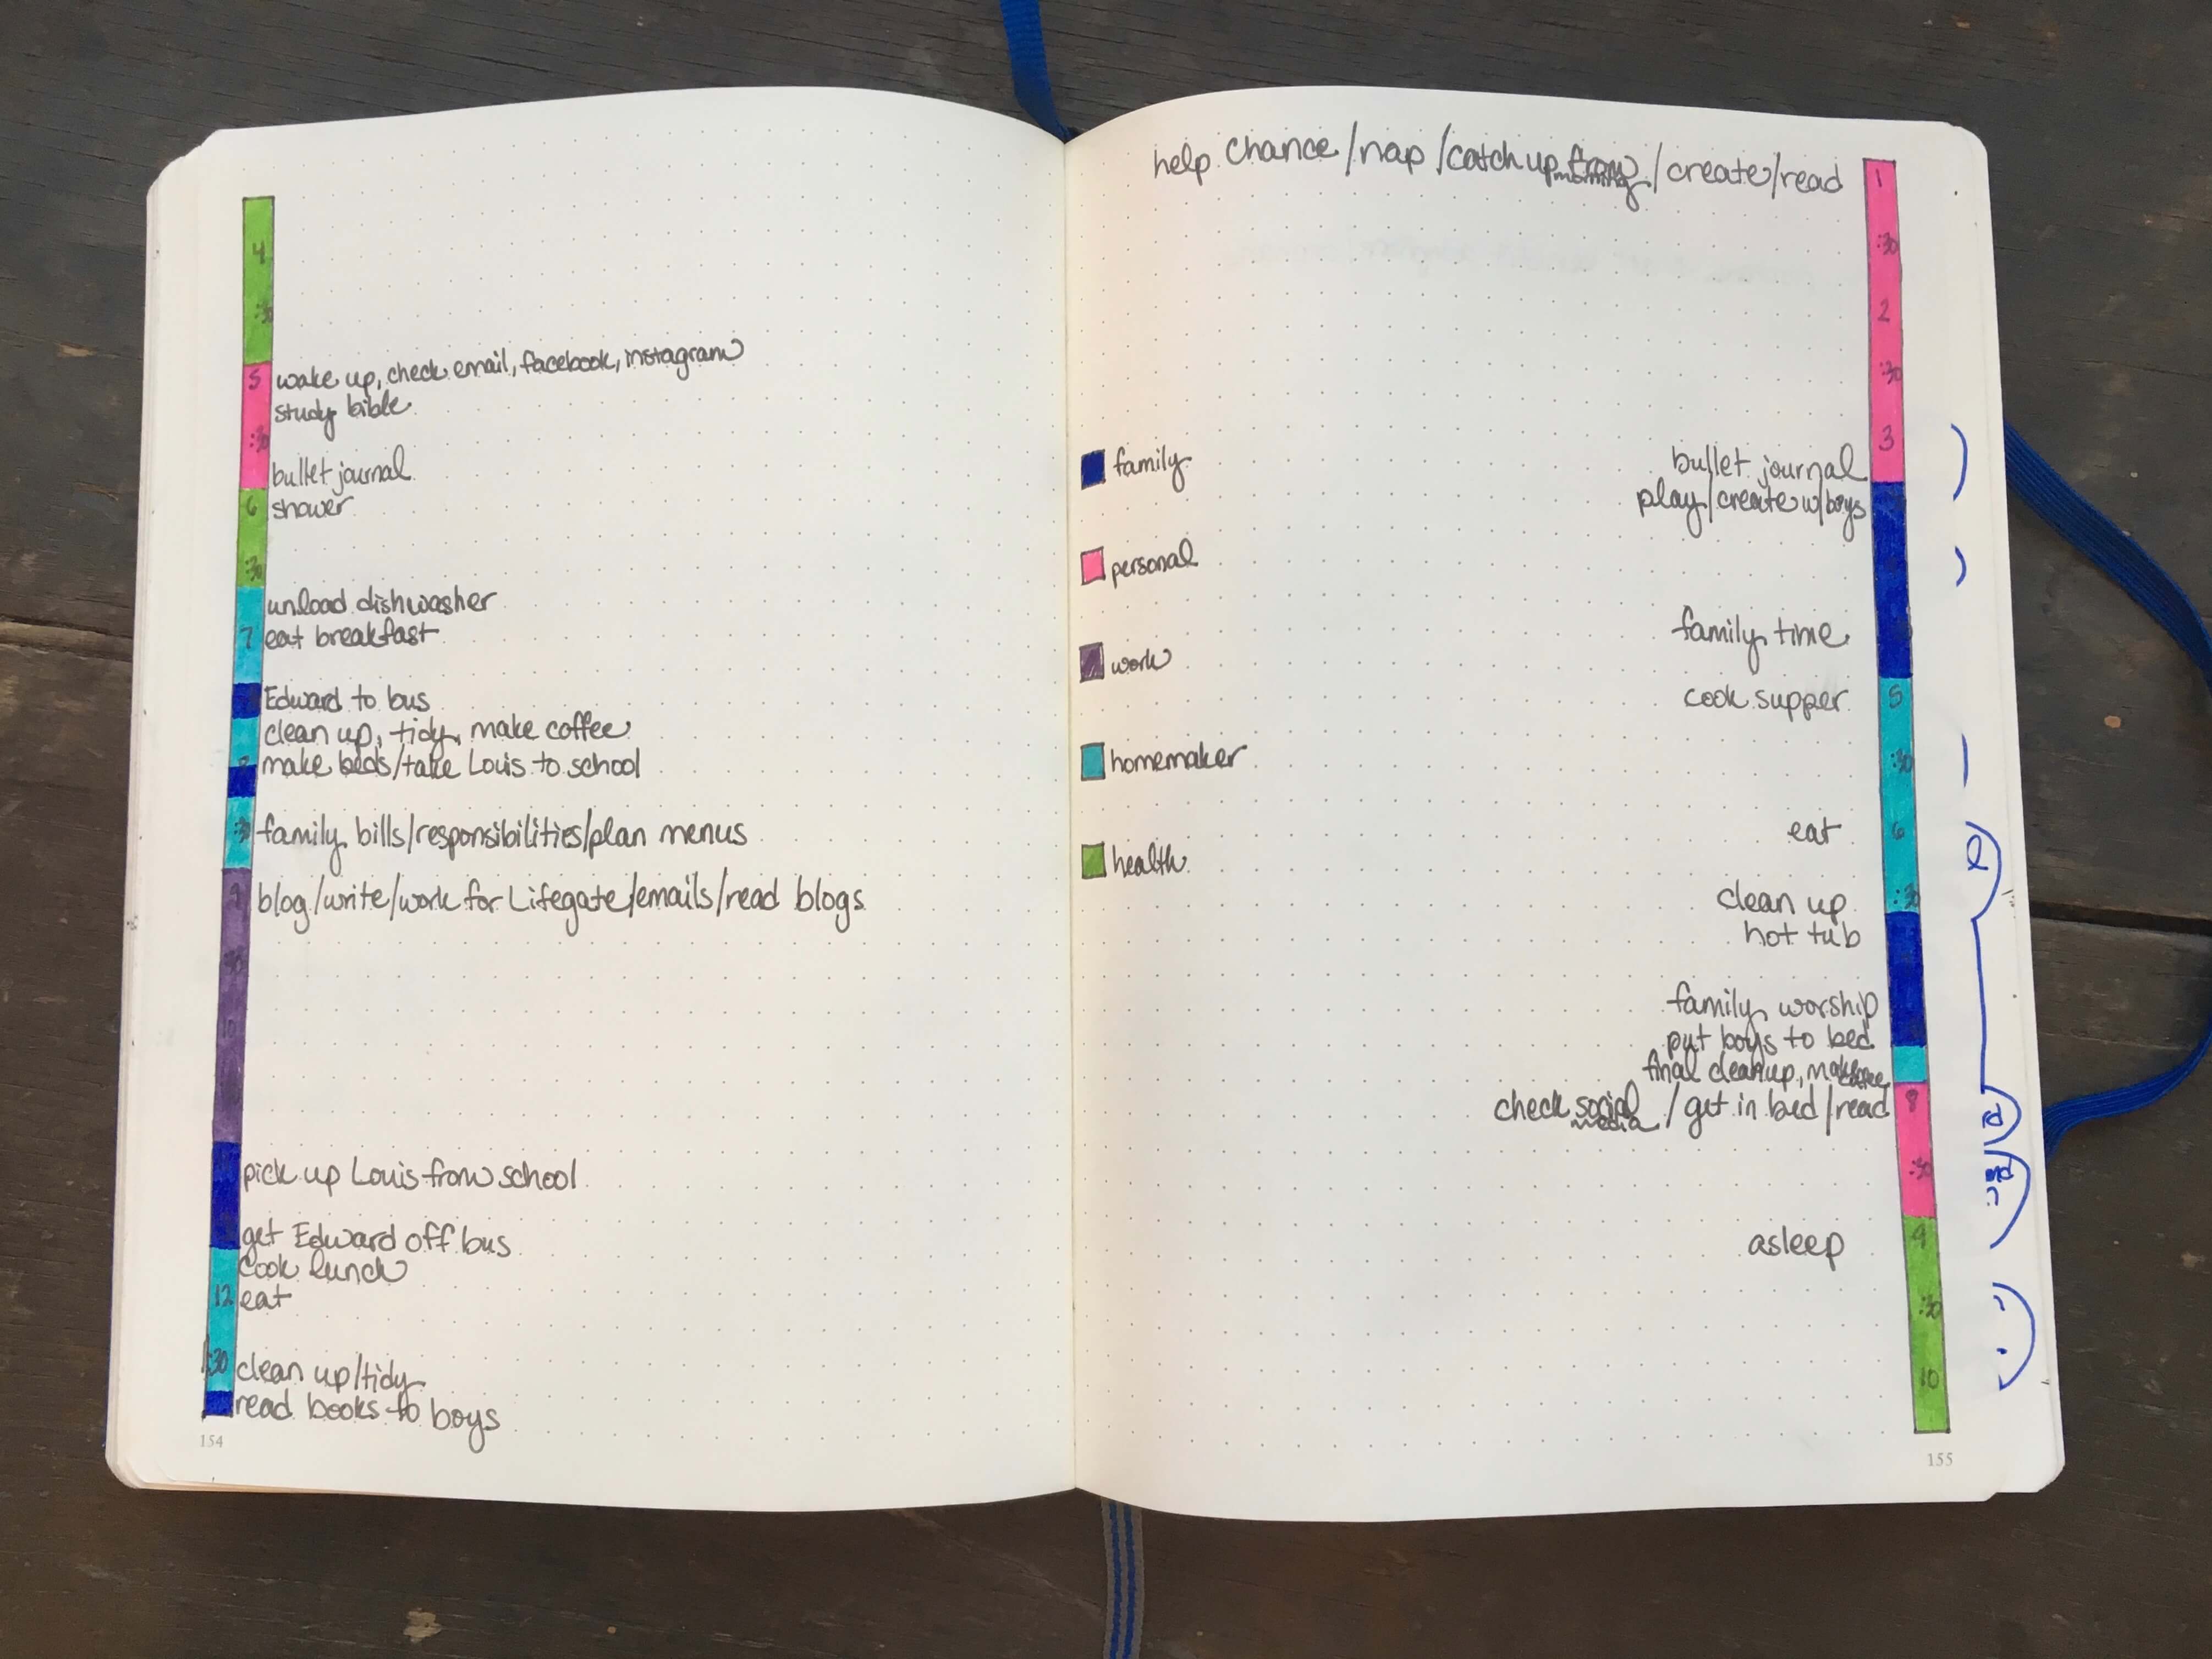 4
:30
5 wake up, check email, facebook, instagram
study bible
:30
bullet journal
6 shower
:30
unload dishwasher
7 eat breakfast
Edward to bus
clean up, tidy, make coffee
make beds/take Louis to school
:30 family bills/responsibilities/plan menus
9 blog/write/work for Lifegate/emails/read blogs
:30
10
pick up Louis from school
get Edward off bus
cook lunch
12 eat
:30 clean up/tidy
read books to boys
154
help Chance/nap/catch up from morning/create/read 1
:30
2
:30
3
bullet journal
play/create w/boys
family time
cook supper 5
:30
eat 6
clean up :30
hot tub
family worship
put boys to bed
final cleanup, make coffee
check social media / get in bed/read 8
:30
asleep 9
:30
10
family
personal
work
homemaker
health
155